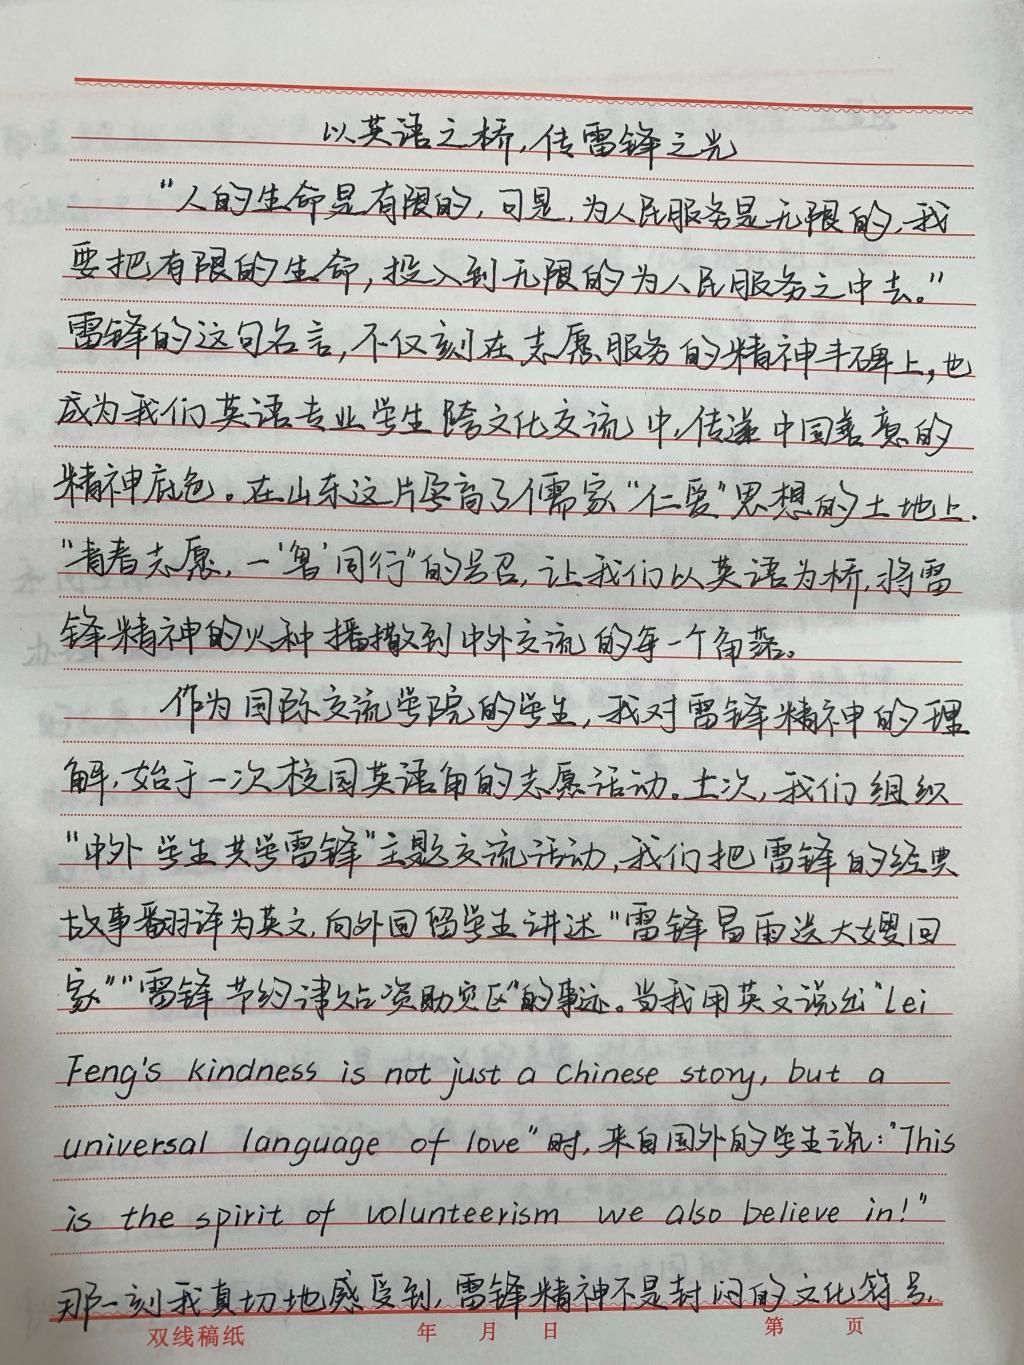 以英语之桥，传雷锋之光
“人的生命是有限的，可是，为人民服务是无限的，我
要把有限的生命，投入到无限的为人民服务之中去。”
雷锋的这句名言，不仅刻在志愿服务的精神丰碑上，也
成为我们英语专业学生跨文化交流中，传递中国善意的
精神底色。在山东这片孕育了儒家“仁爱”思想的土地上，
“青春志愿，一‘鲁’同行”的号召，让我们以英语为桥，将雷
锋精神的火种播撒到中外交流的每一个角落。
作为国际交流学院的学生，我对雷锋精神的理
解，始于一次校园英语角的志愿活动。上次，我们组织
“中外学生共学雷锋”主题交流活动，我们把雷锋的经典
故事翻译为英文，向外国留学生讲述“雷锋冒雨送大嫂回
家”“雷锋节约津贴资助灾区”的事迹。当我用英文说出“Lei
Feng's kindness is not just a Chinese story, but a
universal language of love”时，来自国外的学生说：“This
is the spirit of volunteerism we also believe in!”
那一刻我真切地感受到，雷锋精神不是封闭的文化符号，
双线稿纸 年 月 日 第 页